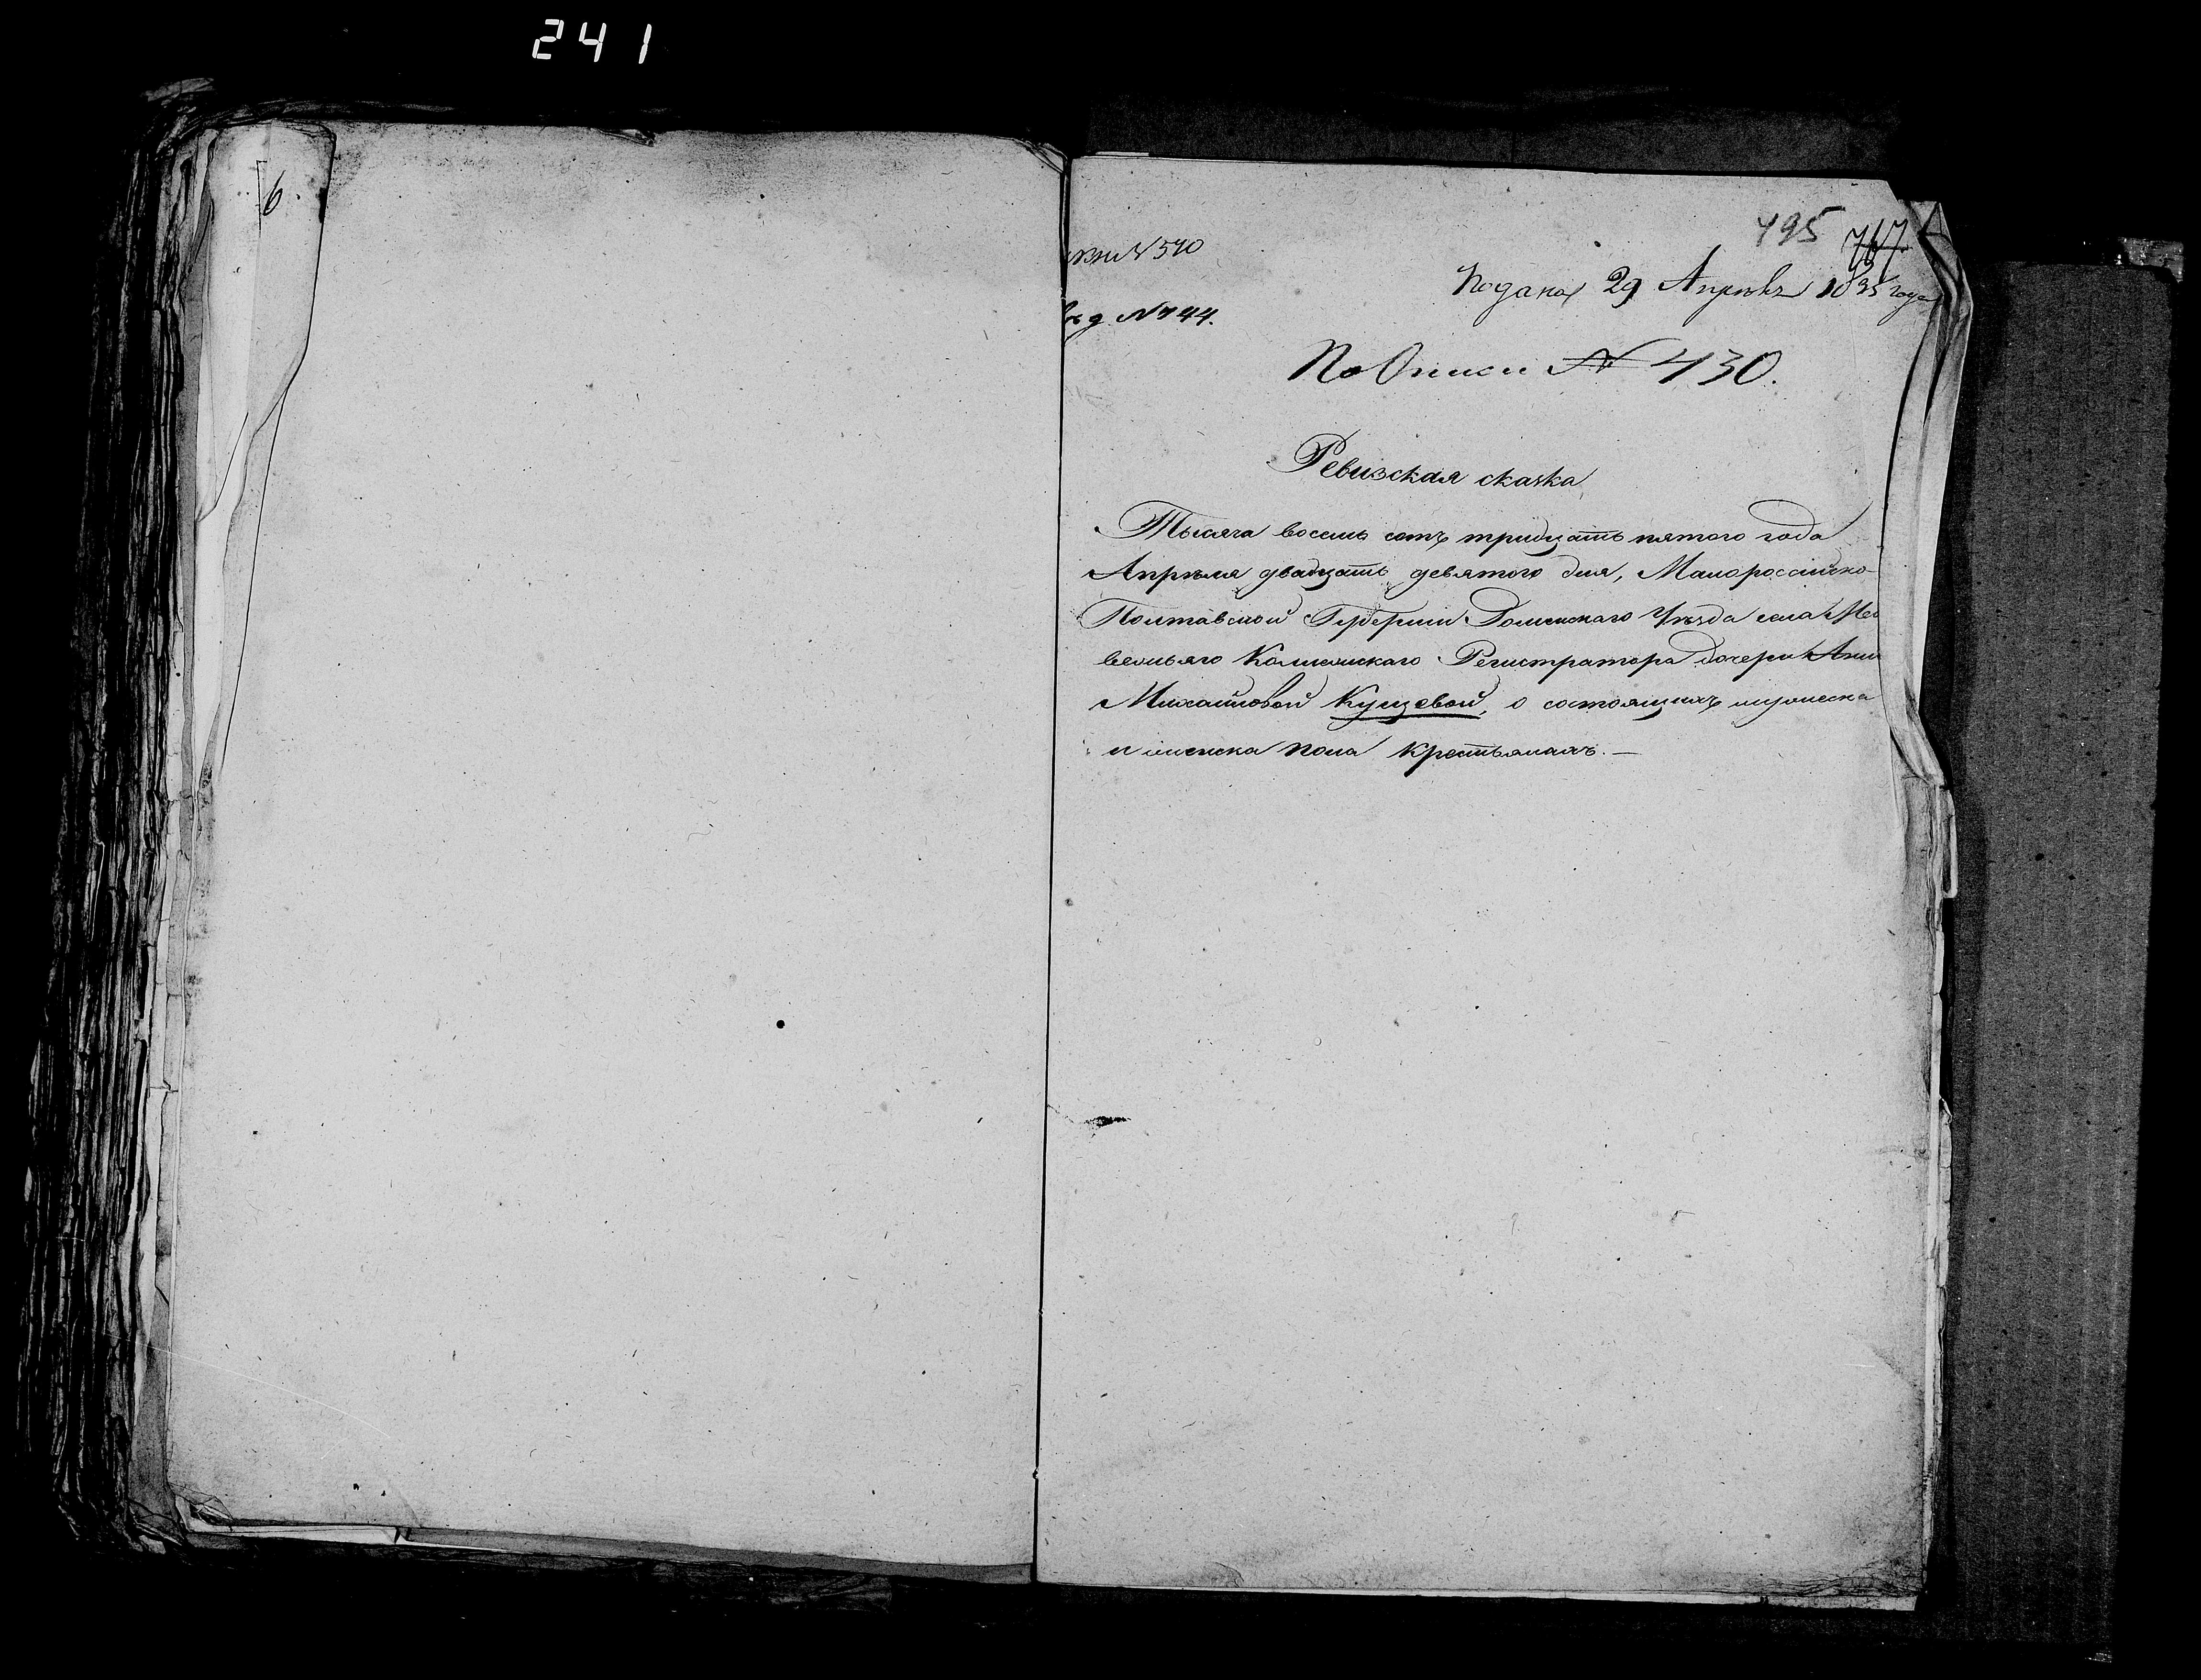 241
6.
495 767
№ 590
Подана 29 Апрѣля 1835 года
№ 744.
По Описи № 430.
Ревизская сказка
Тысяча восемь сотъ тридцать пятого года
Апрѣля двадцать девятого дня, Малороссійско-
Полтавской Губерніи Роменскаго Уѣзда села Мед
вежьяго Колежскаго Регистратора дочери Анн
Михайловой Кущевой, о состоящихъ мужеска
и женска пола крестьянахъ. —